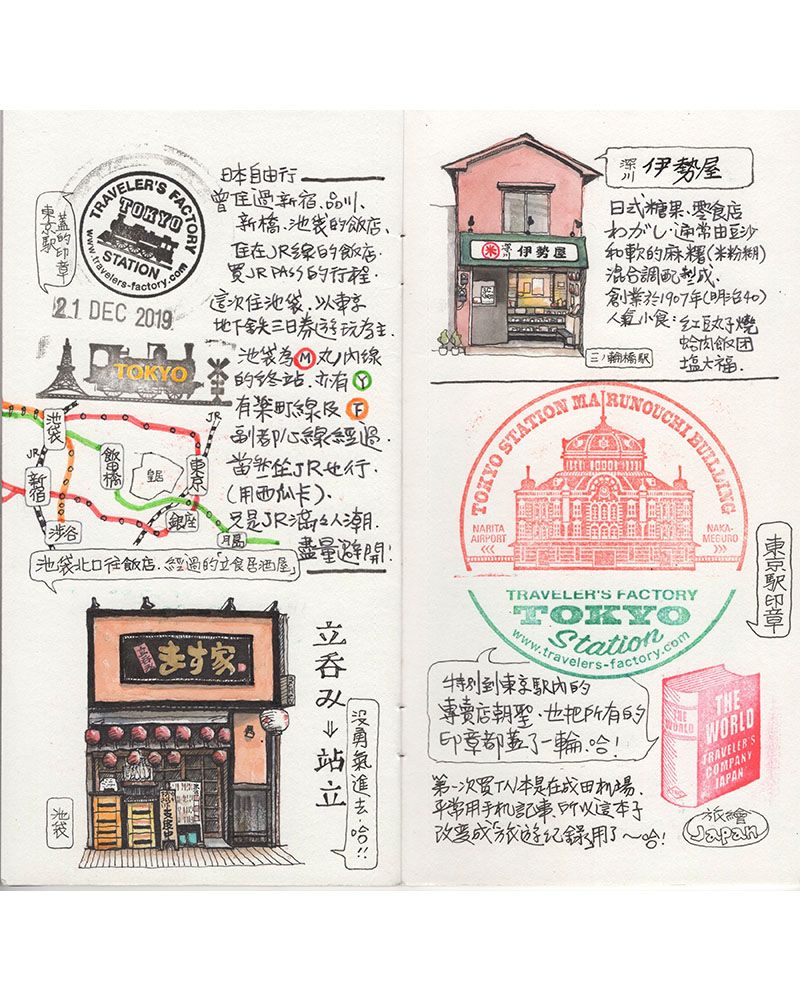 東京駅
蓋的印章
TRAVELER'S FACTORY
TOKYO
STATION
www.travelers-factory.com
21 DEC 2019
TOKYO
日本自由行
曾住過新宿、品川、
新橋、池袋的飯店、
住在JR線的飯店.
買JR PASS的行程.
這次住池袋、以東京
地下鉄三日券遊玩為主.
池袋為M丸ノ內線
的終站.亦有Y
有楽町線及F
副都心線經過.
當然坐JR也行.
(用西瓜卡).
只是JR滿々人潮.
盡量避開!
JR
池袋
新宿
渋谷
飯田橋
皇居
東京
JR
銀座
月島
池袋北口往飯店.經過的「立食居酒屋」
ます家
立呑み⇒站立
沒勇氣進去.哈!!
池袋
深川 伊勢屋
米 深川 伊勢屋
三ノ輪橋駅
日式糖果、零食店
わがし.通常由豆沙
和軟的麻糬(米粉糊)
混合調配製成.
創業於1907年(明治40)
人氣小食: 紅豆丸子燒
蛤肉飯团
塩大福.
TOKYO STATION MARUNOUCHI BUILLING
NARITA AIRPORT
<<<
NAKA-MEGURO
>>>
TRAVELER'S FACTORY
TOKYO
Station
www.travelers-factory.com
東京駅印章
特別到東京駅內的
專賣店朝聖.也把所有的
印章都蓋了一輪.哈!
THE WORLD
THE WORLD
TRAVELER'S
COMPANY
JAPAN
第一次買TN本是在成田机場.
平常用手机記事.所以這本子
改變成「旅遊紀錄」用了~哈!
旅繪
Japan